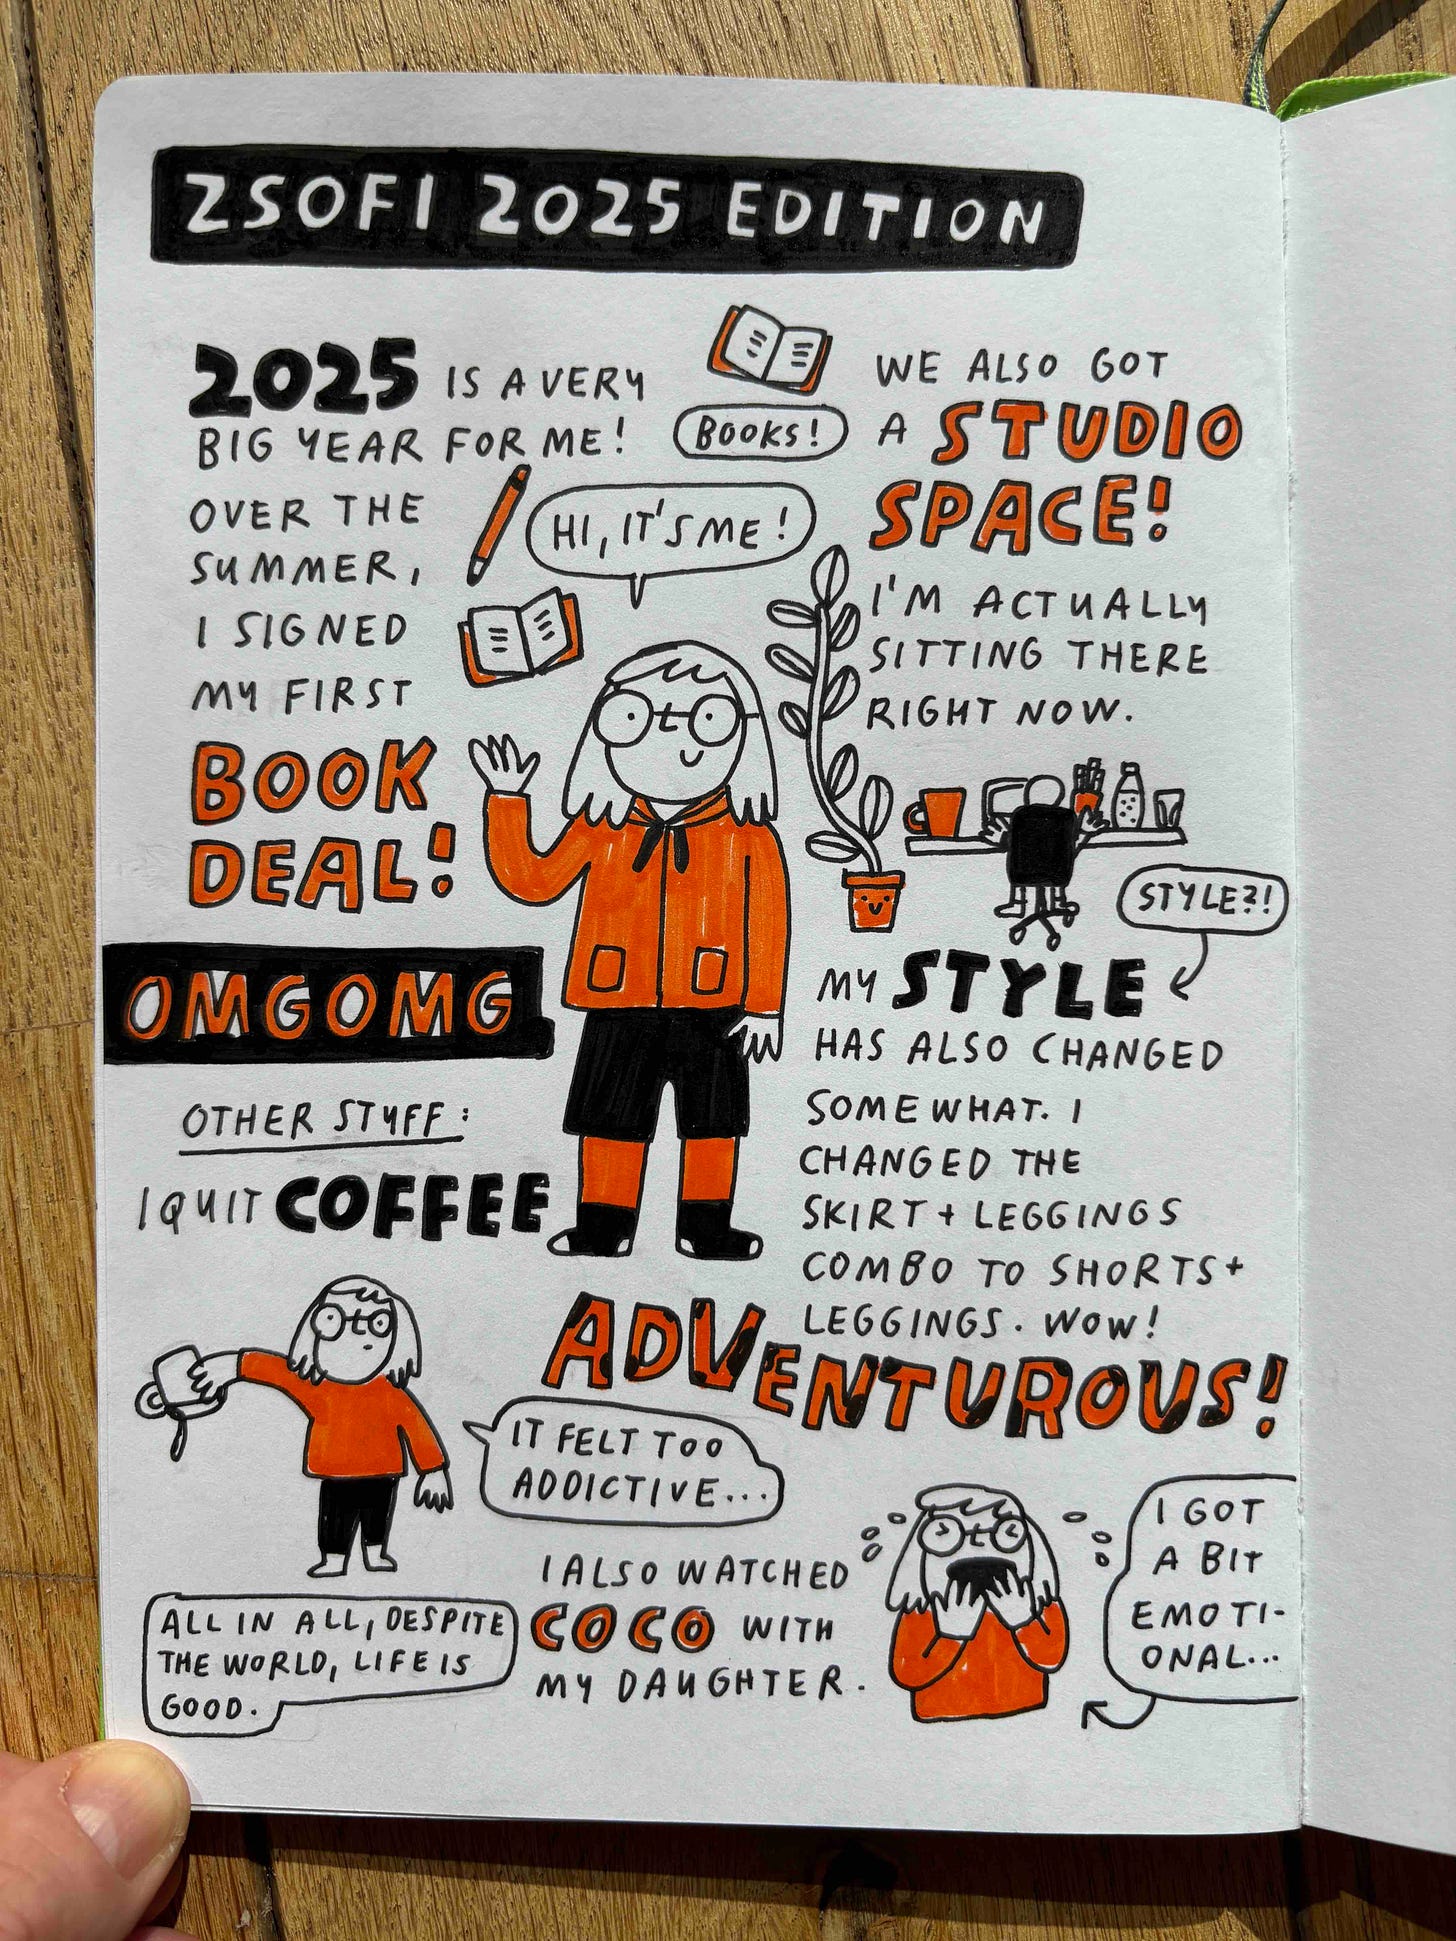 ZSOFI 2025 EDITION
2025 IS A VERY
BIG YEAR FOR ME!
OVER THE
SUMMER,
I SIGNED
MY FIRST
BOOK
DEAL!
OMGOMG
BOOKS!
HI, IT'S ME!
WE ALSO GOT
A STUDIO
SPACE!
I'M ACTUALLY
SITTING THERE
RIGHT NOW.
STYLE?!
MY STYLE
HAS ALSO CHANGED
SOMEWHAT. I
CHANGED THE
SKIRT + LEGGINGS
COMBO TO SHORTS +
LEGGINGS. WOW!
ADVENTUROUS!
OTHER STUFF:
I QUIT COFFEE
IT FELT TOO
ADDICTIVE...
I ALSO WATCHED
COCO WITH
MY DAUGHTER.
I GOT
A BIT
EMOTI-
ONAL...
ALL IN ALL, DESPITE
THE WORLD, LIFE IS
GOOD.